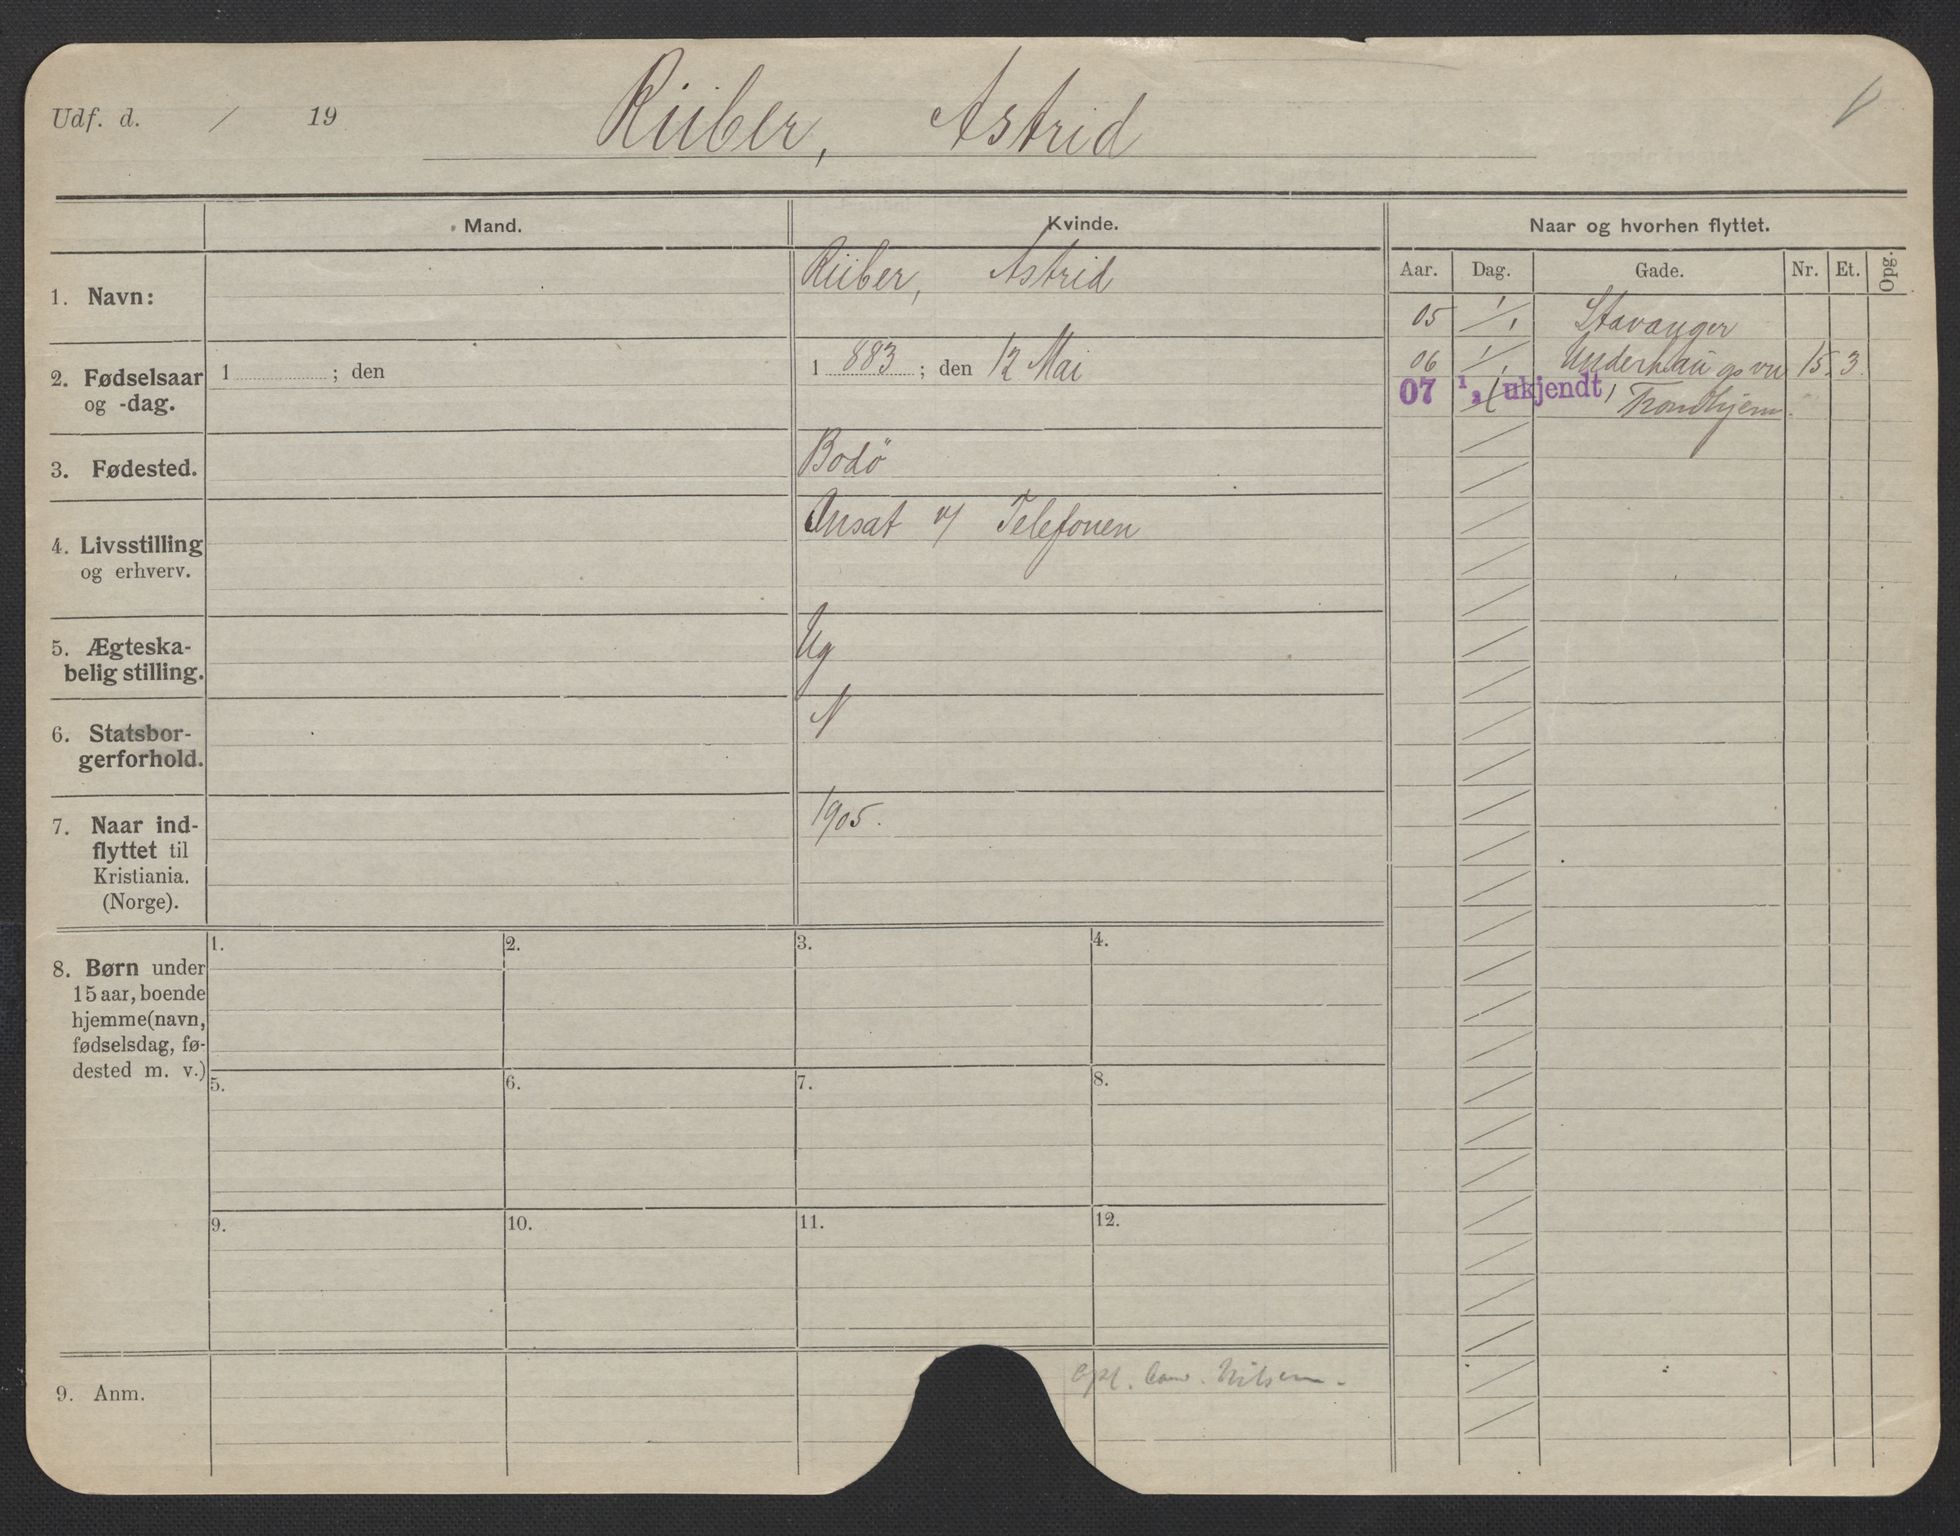 Udf. d. / 19
Rüber, Astrid
Mand.
Kvinde.
Naar og hvorhen flyttet.
Aar. Dag. Gade. Nr. Et. Opg.
1. Navn:
Rüber, Astrid
05 1/1 Stavanger
06 1/1 Underhaugsvn 15. 3.
07 1, (ukjendt) Trondhjem.
2. Fødselsaar
og -dag.
1 ; den
1 883 ; den 12 Mai
3. Fødested.
Bodö
4. Livsstilling
og erhverv.
Ansat v/ Telefonen
5. Ægteska-
belig stilling.
Ug
6. Statsbor-
gerforhold.
N
7. Naar ind-
flyttet til
Kristiania.
(Norge).
1905.
8. Børn under
15 aar, boende
hjemme (navn,
fødselsdag, fø-
dested m. v.)
1. 2. 3. 4.
5. 6. 7. 8.
9. 10. 11. 12.
9. Anm.
Opl. Nilsen.